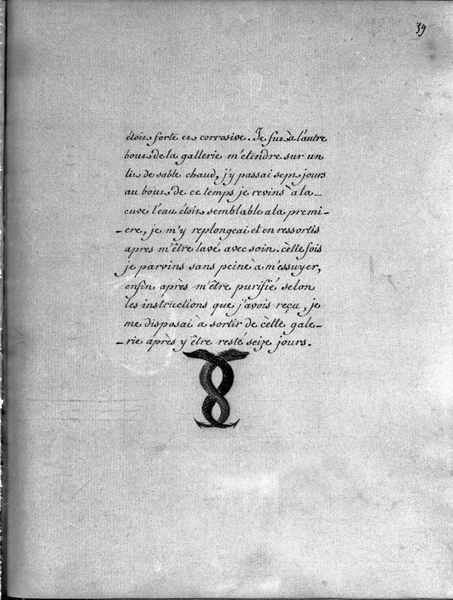 39
étoit forte et corrosive. Je fus a l'autre
bout de la gallerie m'etendre sur un
lit de sable chaud, j'y passai sept jours
au bout de ce temps je revins à la
cuve l'eau étoit semblable a la premi-
-ere, je m'y replongeai et en ressortis
apres m'être lavé avec soin. cette fois
je parvins sans peine à m'essuyer,
enfin après m'être purifié selon
les instructions que j'avois reçu, je
me disposai à sortir de cette gale-
-rie après y être resté seize jours.